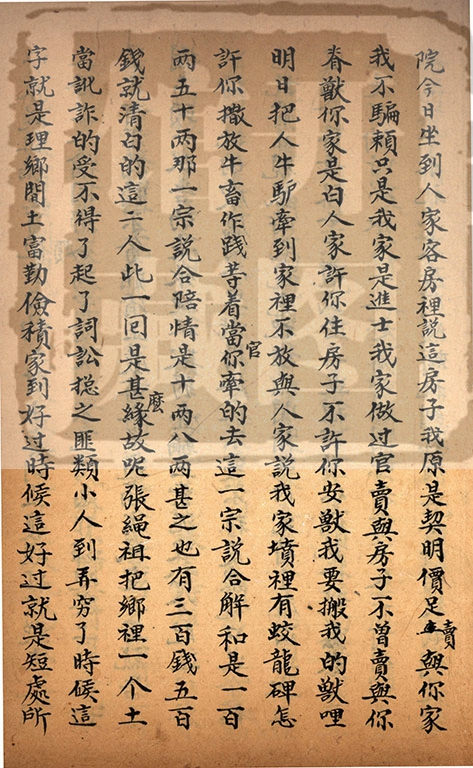 院今日坐到人家客房裡說這房子我原是契明價足賣與你家
我不騙賴只是我家是進士我家做过官賣與房子不曾賣與你
脊獸你家是白人家許你住房子不許你安獸我要搬我的獸哩
明日把人牛馿牽到家裡不放與人家說我家墳裡有蛟龍碑怎
許你撒放牛畜作踐䓁着當官你牽的去這一宗說合解和是一百
兩五十兩那一宗說合陪情是十兩八兩甚之也有三百錢五百
錢就清白的這二人此一回是甚麽緣故呢張繩祖把鄉裡一个土
當訛詐的受不得了起了詞訟揔之匪類小人到弄穷了時候這
字就是理鄉間土富勤儉積家到好过時候這好过就是短處所